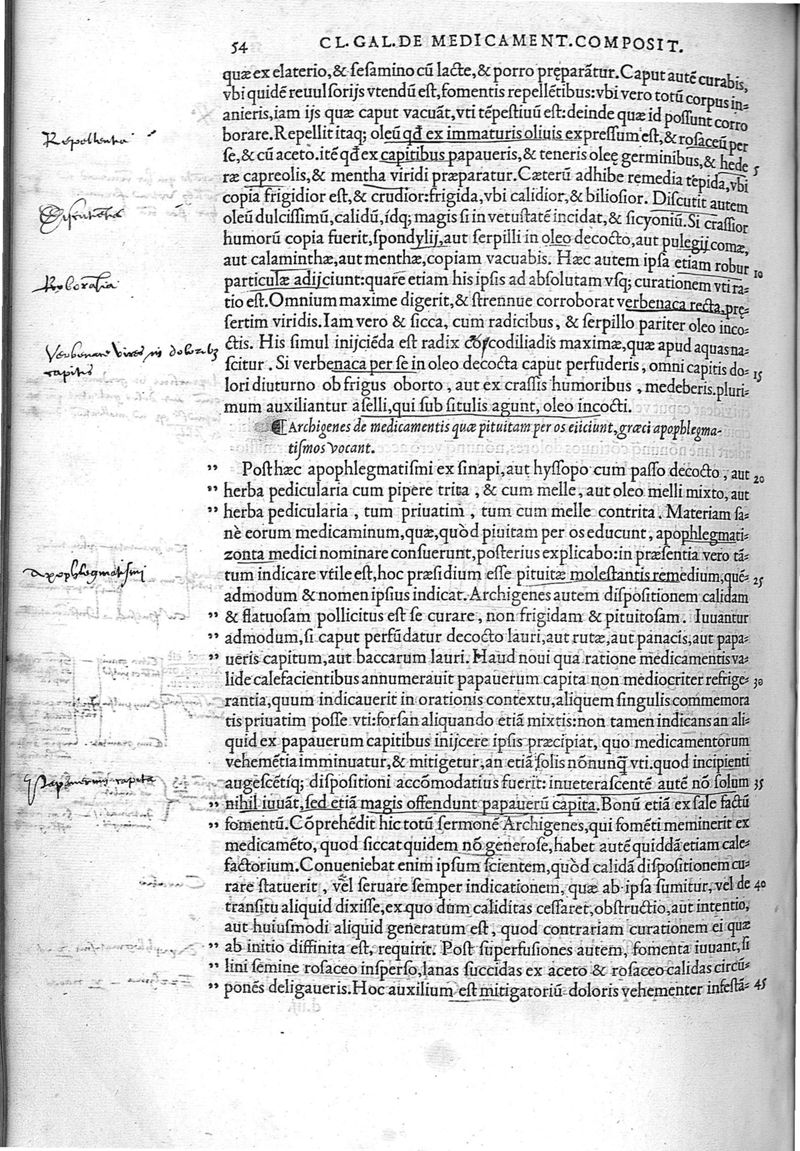 54 CL. GAL. DE MEDICAMENT. COMPOSIT.
quæ ex elaterio, & sesamino cū lacte, & porro pręparātur. Caput autē curabis,
vbi quidē reuulsorijs vtendū est, fomentis repellētibus: vbi vero totū corpus in=
anieris, iam ijs quæ caput vacuāt, vti tēpestiuū est: deinde quæ id possunt corro
borare. Repellit itaq; oleū qđ ex immaturis oliuis expressum est, & rosaceū per
Repellentia
se, & cū aceto. itē qđ ex capitibus papaueris, & teneris oleę germinibus, & hede 5
ræ capreolis, & mentha viridi præparatur. Cæterū adhibe remedia tepida, vbi
copia frigidior est, & crudior: frigida, vbi calidior, & biliosior. Discutit autem
Discutientia
oleū dulcissimū, calidū, idq; magis si in vetustatē incidat, & sicyoniū. Si crassior
humorū copia fuerit, spondylij, aut serpilli in oleo decocto, aut pulegij comæ,
aut calaminthæ, aut menthæ, copiam vacuabis. Hæc autem ipsa etiam robur 10
Roborātia
particulæ adijciunt: quare etiam his ipsis ad absolutam vsq; curationem vti ra=
tio est. Omnium maxime digerit, & strennue corroborat verbenaca recta, pre=
sertim viridis. Iam vero & sicca, cum radicibus, & serpillo pariter oleo inco=
ctis. His simul inijciēda est radix crocodiliadis maximæ, quæ apud aquas na=
Verbenacæ vires in doloribus
capitis
scitur. Si verbenaca per se in oleo decocta caput perfuderis, omni capitis do= 15
lori diuturno ob frigus oborto, aut ex crassis humoribus, medeberis. pluri=
mum auxiliantur aselli, qui sub situlis agunt, oleo incocti.
Archigenes de medicamentis quæ pituitam per os eijciunt, græci apophlegma=
tismos vocant.
,, Post hæc apophlegmatismi ex sinapi, aut hyssopo cum passo decocto, aut 20
,, herba pedicularia cum pipere trita, & cum melle, aut oleo melli mixto, aut
,, herba pedicularia, tum priuatim, tum cum melle contrita. Materiam sa=
nè eorum medicaminum, quæ, quòd piuitam per os educunt, apophlegmati=
zonta medici nominare consuerunt, posterius explicabo: in præsentia vero tā=
Apophlegmatismi
tum indicare vtile est, hoc præsidium esse pituitæ molestantis remedium, quē= 25
admodum & nomen ipsius indicat. Archigenes autem dispositionem calidam
,, & flatuosam pollicitus est se curare, non frigidam & pituitosam. Iuuantur
,, admodum, si caput perfūdatur decocto lauri, aut rutæ, aut panacis, aut papa=
,, ueris capitum, aut baccarum lauri. Haud noui qua ratione medicamentis va=
lide calefacientibus annumerauit papauerum capita non mediocriter refrige= 30
rantia, quum indicauerit in orationis contextu, aliquem singulis commemora
tis priuatim posse vti: forsan aliquando etiā mixtis: non tamen indicans an ali=
quid ex papauerum capitibus inijcere ipsis præcipiat, quo medicamentorum
vehemētia imminuatur, & mitigetur, an etiā solis nōnunq̄ vti. quod incipienti
Papauerum capita
augescētiq; dispositioni accōmodatius fuerit: inueterascentē autē nō solum 35
,, nihil iuuāt, sed etiā magis offendunt papauerū capita. Bonū etiā ex sale factū
,, fomentū. Cōprehēdit hic totū sermonē Archigenes, qui fomēti meminerit ex
medicamēto, quod siccat quidem nō generose, habet autē quiddā etiam cale=
factorium. Conueniebat enim ipsum scientem, quòd calidā dispositionem cu=
rare statuerit, vel seruare semper indicationem, quæ ab ipsa sumitur, vel de 40
transitu aliquid dixisse, ex quo dum caliditas cessaret, obstructio, aut intentio,
aut huiusmodi aliquid generatum est, quod contrariam curationem ei quæ
,, ab initio diffinita est, requirit. Post superfusiones autem, fomenta iuuant, si
,, lini semine rosaceo insperso, lanas succidas ex aceto & rosaceo calidas circū=
,, ponēs deligaueris. Hoc auxilium est mitigatoriū doloris vehementer infestā= 45